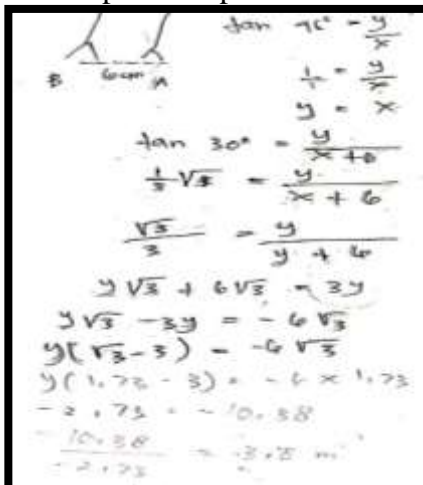 tan 45° = y/x
B 6cm A
1/1 = y/x
y = x
tan 30° = y/x+6
1/3 √3 = y/x + 6
√3/3 = y/y + 6
y√3 + 6√3 = 3y
y√3 - 3y = -6√3
y(√3 - 3) = -6√3
y(1,73 - 3) = -6 × 1,73
-2,73 = -10,38
-10,38/-2,73 = 3,8 m